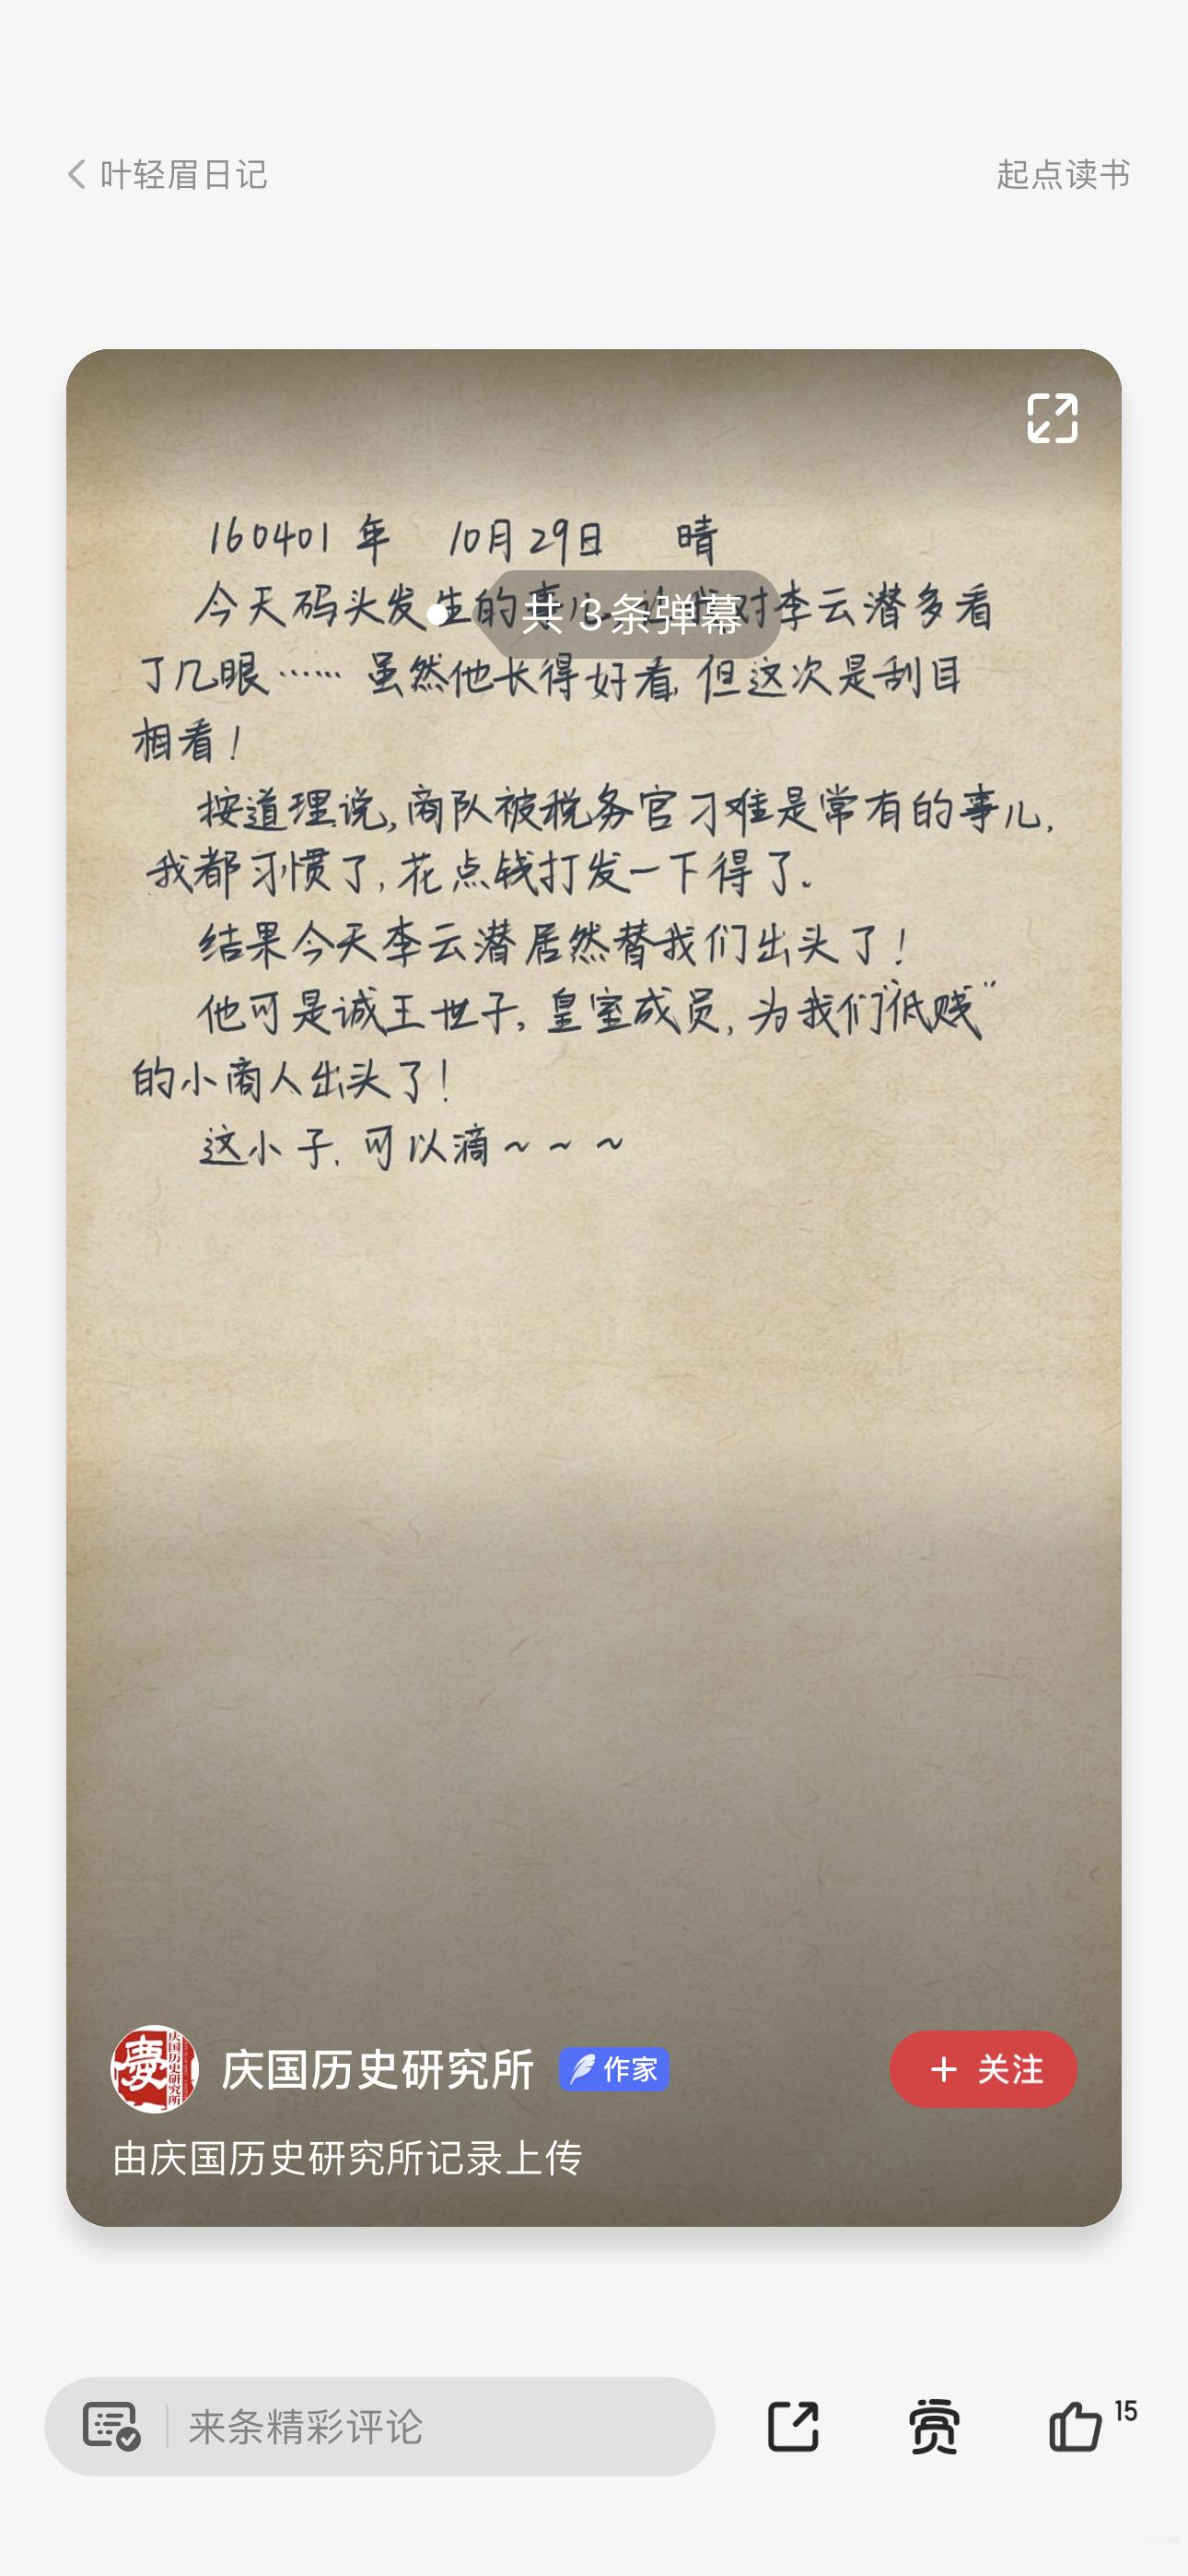 叶轻眉日记
起点读书
160401年 10月29日 晴
今天码头发生的事儿,让我对李云潜多看
共 3 条弹幕
了几眼……虽然他长得好看,但这次是刮目
相看!
按道理说,商队被税务官刁难是常有的事儿,
我都习惯了,花点钱打发一下得了。
结果今天李云潜居然替我们出头了!
他可是诚王世子,皇室成员,为我们"低贱"
的小商人出头了!
这小子,可以滴~~~
夢
庆国历史研究所
庆国历史研究所
作家
+ 关注
由庆国历史研究所记录上传
来条精彩评论
赏
15